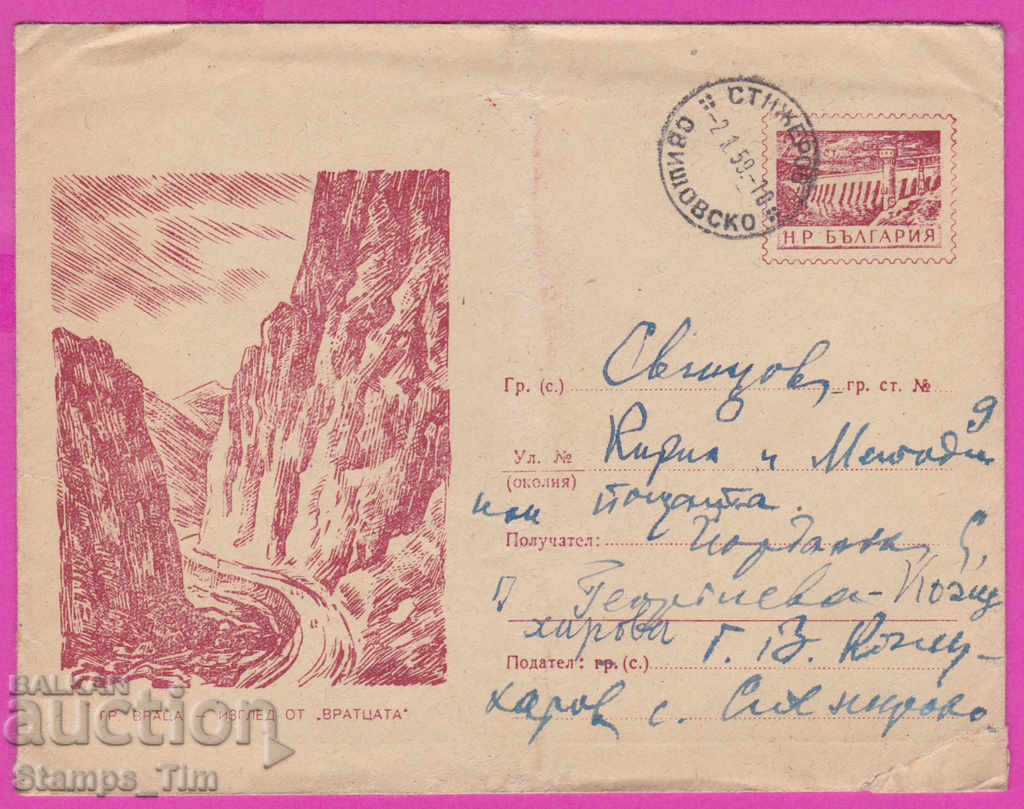 СТИЖЕРОВО
СВИЩОВСКО
-2.1.59.-10
Н Р БЪЛГАРИЯ
Гр. (с.) Свищов, гр. ст. №
Ул. № Кирил и Методи 9
(околия)
пощата.
Получател: Йорданка
Георгиева - Кожу
харова
Подател: гр. (с.) Г. В. Кожу-
харов с.
ГР. ВРАЦА – ИЗГЛЕД ОТ „ВРАТЦАТА"
BALKAN
auction
Stamps_Tim